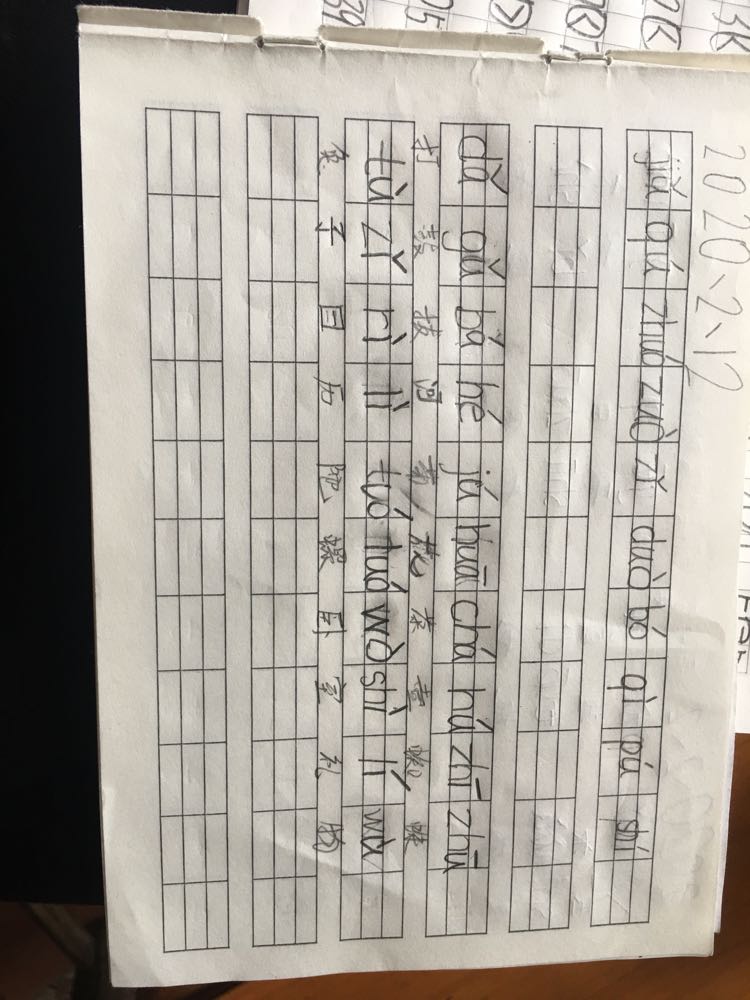 2020、2、12
jiǎ qú zhuó zuò zǐ duò bó qì pú shí
dǎ gǔ bá hé jú huā chá hú zhī zhū
打 鼓 拔 河 菊 花 茶 壶 蜘 蛛
tù zǐ rì lì tuó tuó wò shì lí wù
兔 子 目 历 室 礼 物